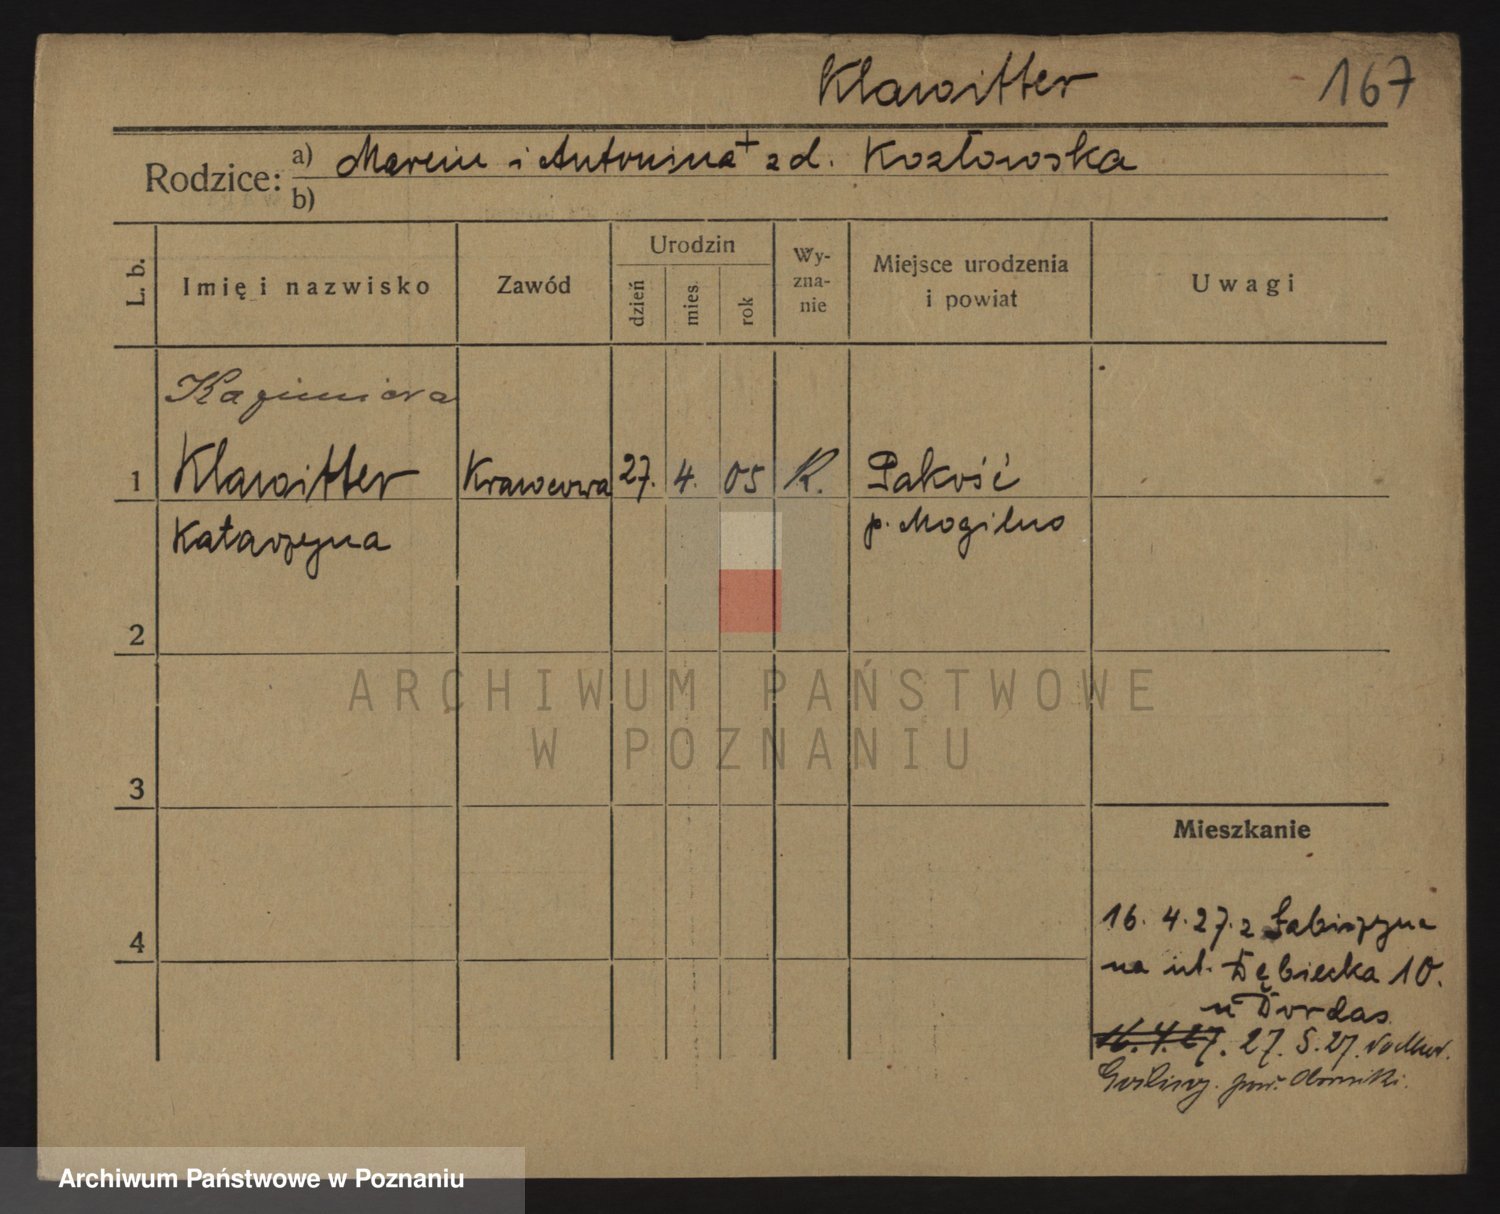 Klawitter 167
Rodzice: a) Marcin i Antonina + z d. Kozłowska
b)
L. b. Imię i nazwisko Zawód Urodzin dzień mies. rok Wy-zna-nie Miejsce urodzenia i powiat Uwagi
Kazimiera
1 Klawitter Krawcowa 27. 4. 05 R. Pakość
Katarzyna p. Mogilno
2
ARCHIWUM PAŃSTWOWE
W POZNANIU
3
Mieszkanie
4
16. 4. 27. z Łabiszyna
na ul. Dębiecka 10.
u Dordas
16. 4. 27. 27. 5. 27. do Mur.
Gośliny. pow. Oborniki.
Archiwum Państwowe w Poznaniu